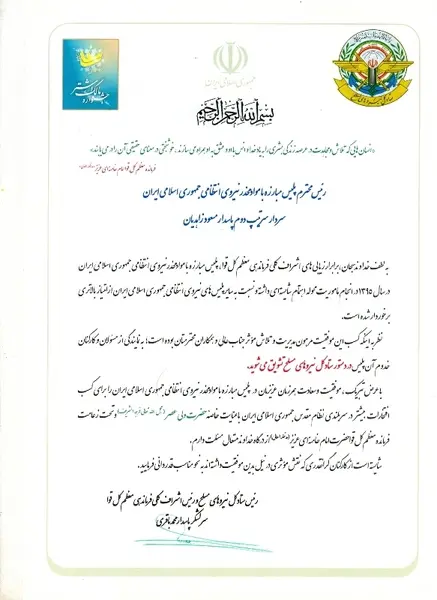 جمهوری اسلامی ایران
جشنواره مالک اشتر
بسم الله الرحمن الرحیم
«انسان‌هایی که تلاش و مجاهدت در عرصه زندگی بشری را با یاد خدا و انس با او و عشق به او همراه می سازند، خوشبختی در معنای حقیقی آن را در می یابند»
فرمانده معظم کل قوا امام خامنه ای عزیز
رئیس محترم پلیس مبارزه با مواد مخدر نیروی انتظامی جمهوری اسلامی ایران
سردار سرتیپ دوم پاسدار مسعود زاهدیان
به لطف خداوند سبحان، برابر ارزیابی های اشراف کلی فرماندهی معظم کل قوا، پلیس مبارزه با مواد مخدر نیروی انتظامی جمهوری اسلامی ایران
در سال ۱۳۹۵ در انجام ماموریت محوله اهتمام شایسته ای داشته و نسبت به سایر پلیس های نیروی انتظامی جمهوری اسلامی ایران از امتیاز بالاتری
برخوردار شده است.
نظر به اینکه کسب این موفقیت مرهون مدیریت و تلاش مؤثر جناب عالی و همکاران محترمتان بوده است؛ به نمایندگی از مسئولان و کارکنان
خدوم آن پلیس در دستور ستاد کل نیروهای مسلح تشویق می شوید.
با عرض تبریک، موفقیت و سعادت همرزمان عزیزمان در پلیس مبارزه با مواد مخدر نیروی انتظامی جمهوری اسلامی ایران را برای کسب
افتخارات بیشتر در سربلندی نظام مقدس جمهوری اسلامی ایران با عنایت خاصه حضرت ولی عصر و تحت زعامت
فرمانده معظم کل قوا حضرت امام خامنه ای عزیز از درگاه خداوند متعال مسئلت دارم.
شایسته است از کارکنان گرانقدری که نقش مؤثری در نیل بدین موفقیت داشته اند به نحو مناسب قدردانی فرمایید.
رئیس ستاد کل نیروهای مسلح و رئیس اشراف کلی فرماندهی معظم کل قوا
سرلشکر پاسدار محمد باقری